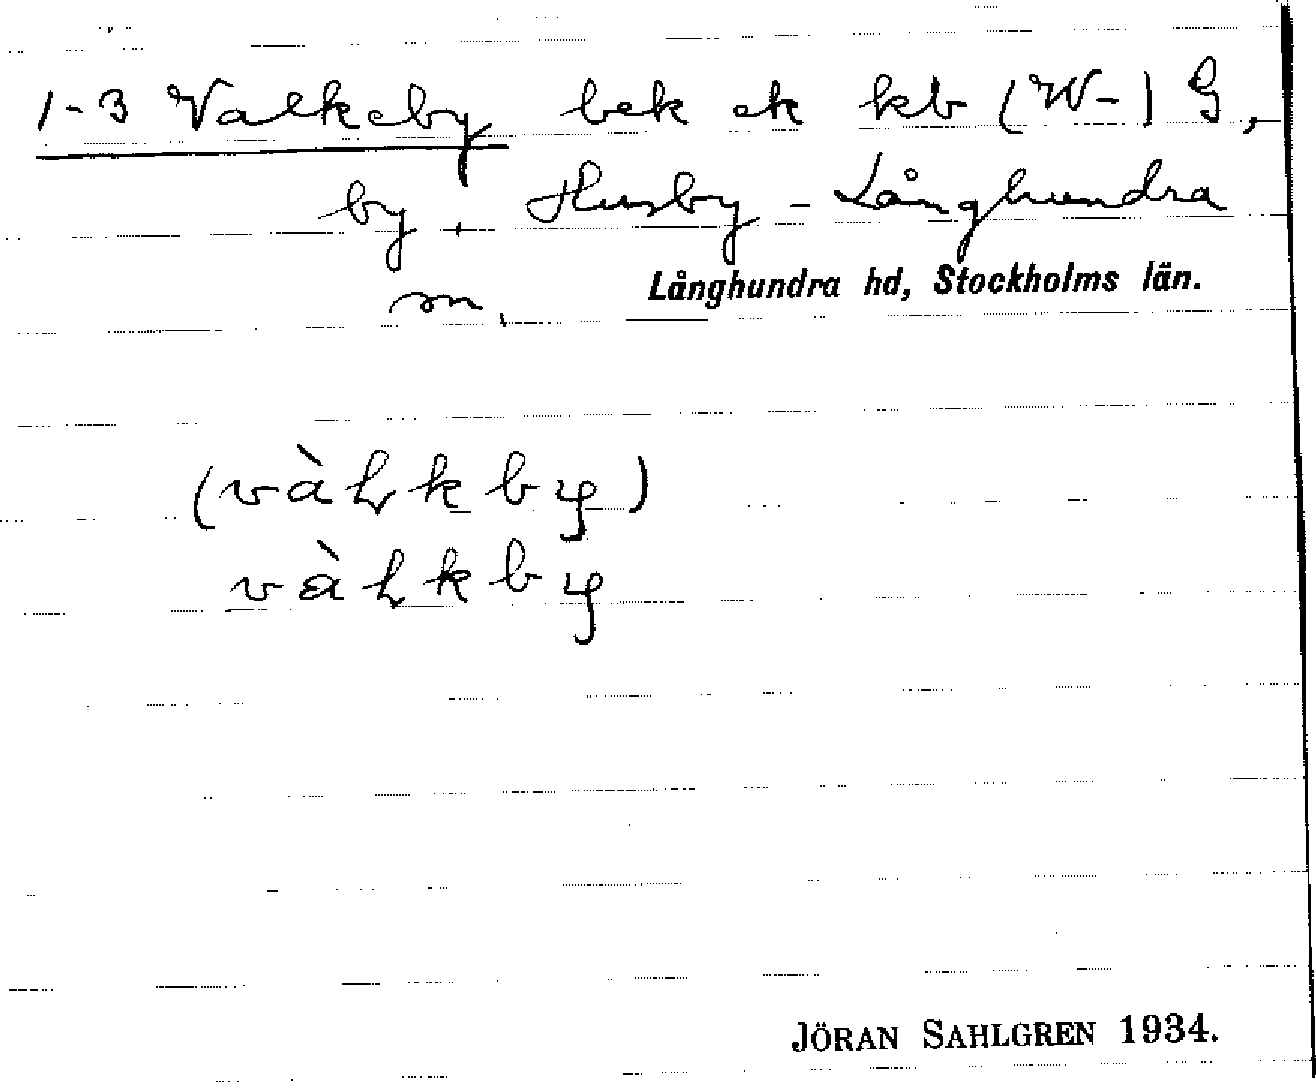 1-3 Valkeby bek ek kb (W-) G,
by, Husby-Långhundra
sn,
Långhundra hd, Stockholms län.
(vàɫkby)
vàɫkby
JÖRAN SAHLGREN 1934.